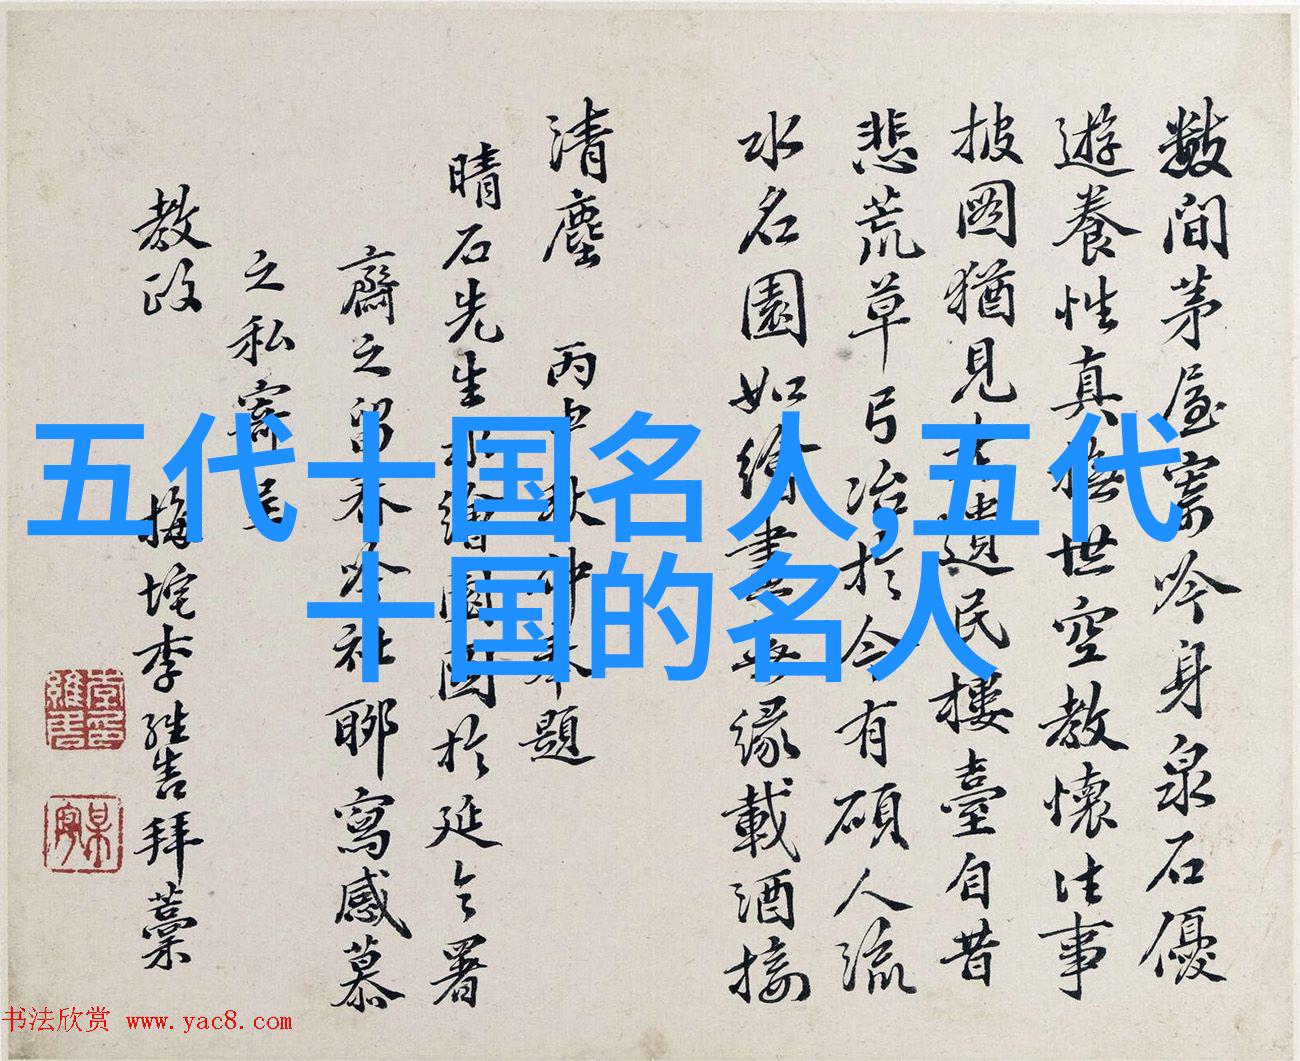 五代十国名人,五代
十国的名人
數間茅屋寄吟身泉石優
遊養性真撫世空教懷往事
披圖猶見遺民樓臺自昔
悲荒草弓冶於今有碩人流
水名園如繪畫緣載酒接
清塵 丙秋仲題
晴石先生繪園圖於延令署
齋之留春吟社聊寫感慕
之私寄呈
教政 梅垞李拜藁
书法欣赏 www.yac8.com